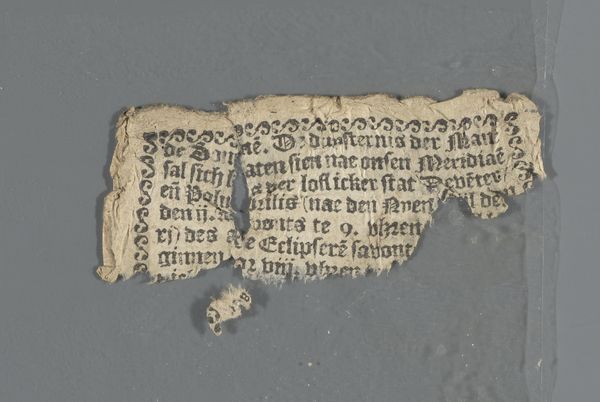 de Son nē. De dunsternis der Man
sal sich laten sien nae onsen Meridiaē
eñ Polus der loflicker stat Devēter
den ij. Aprilis (nae den Nyen stil den
xj) des avonts te 9. vhren
ginnen te Eclipserē savont
viij. vhren